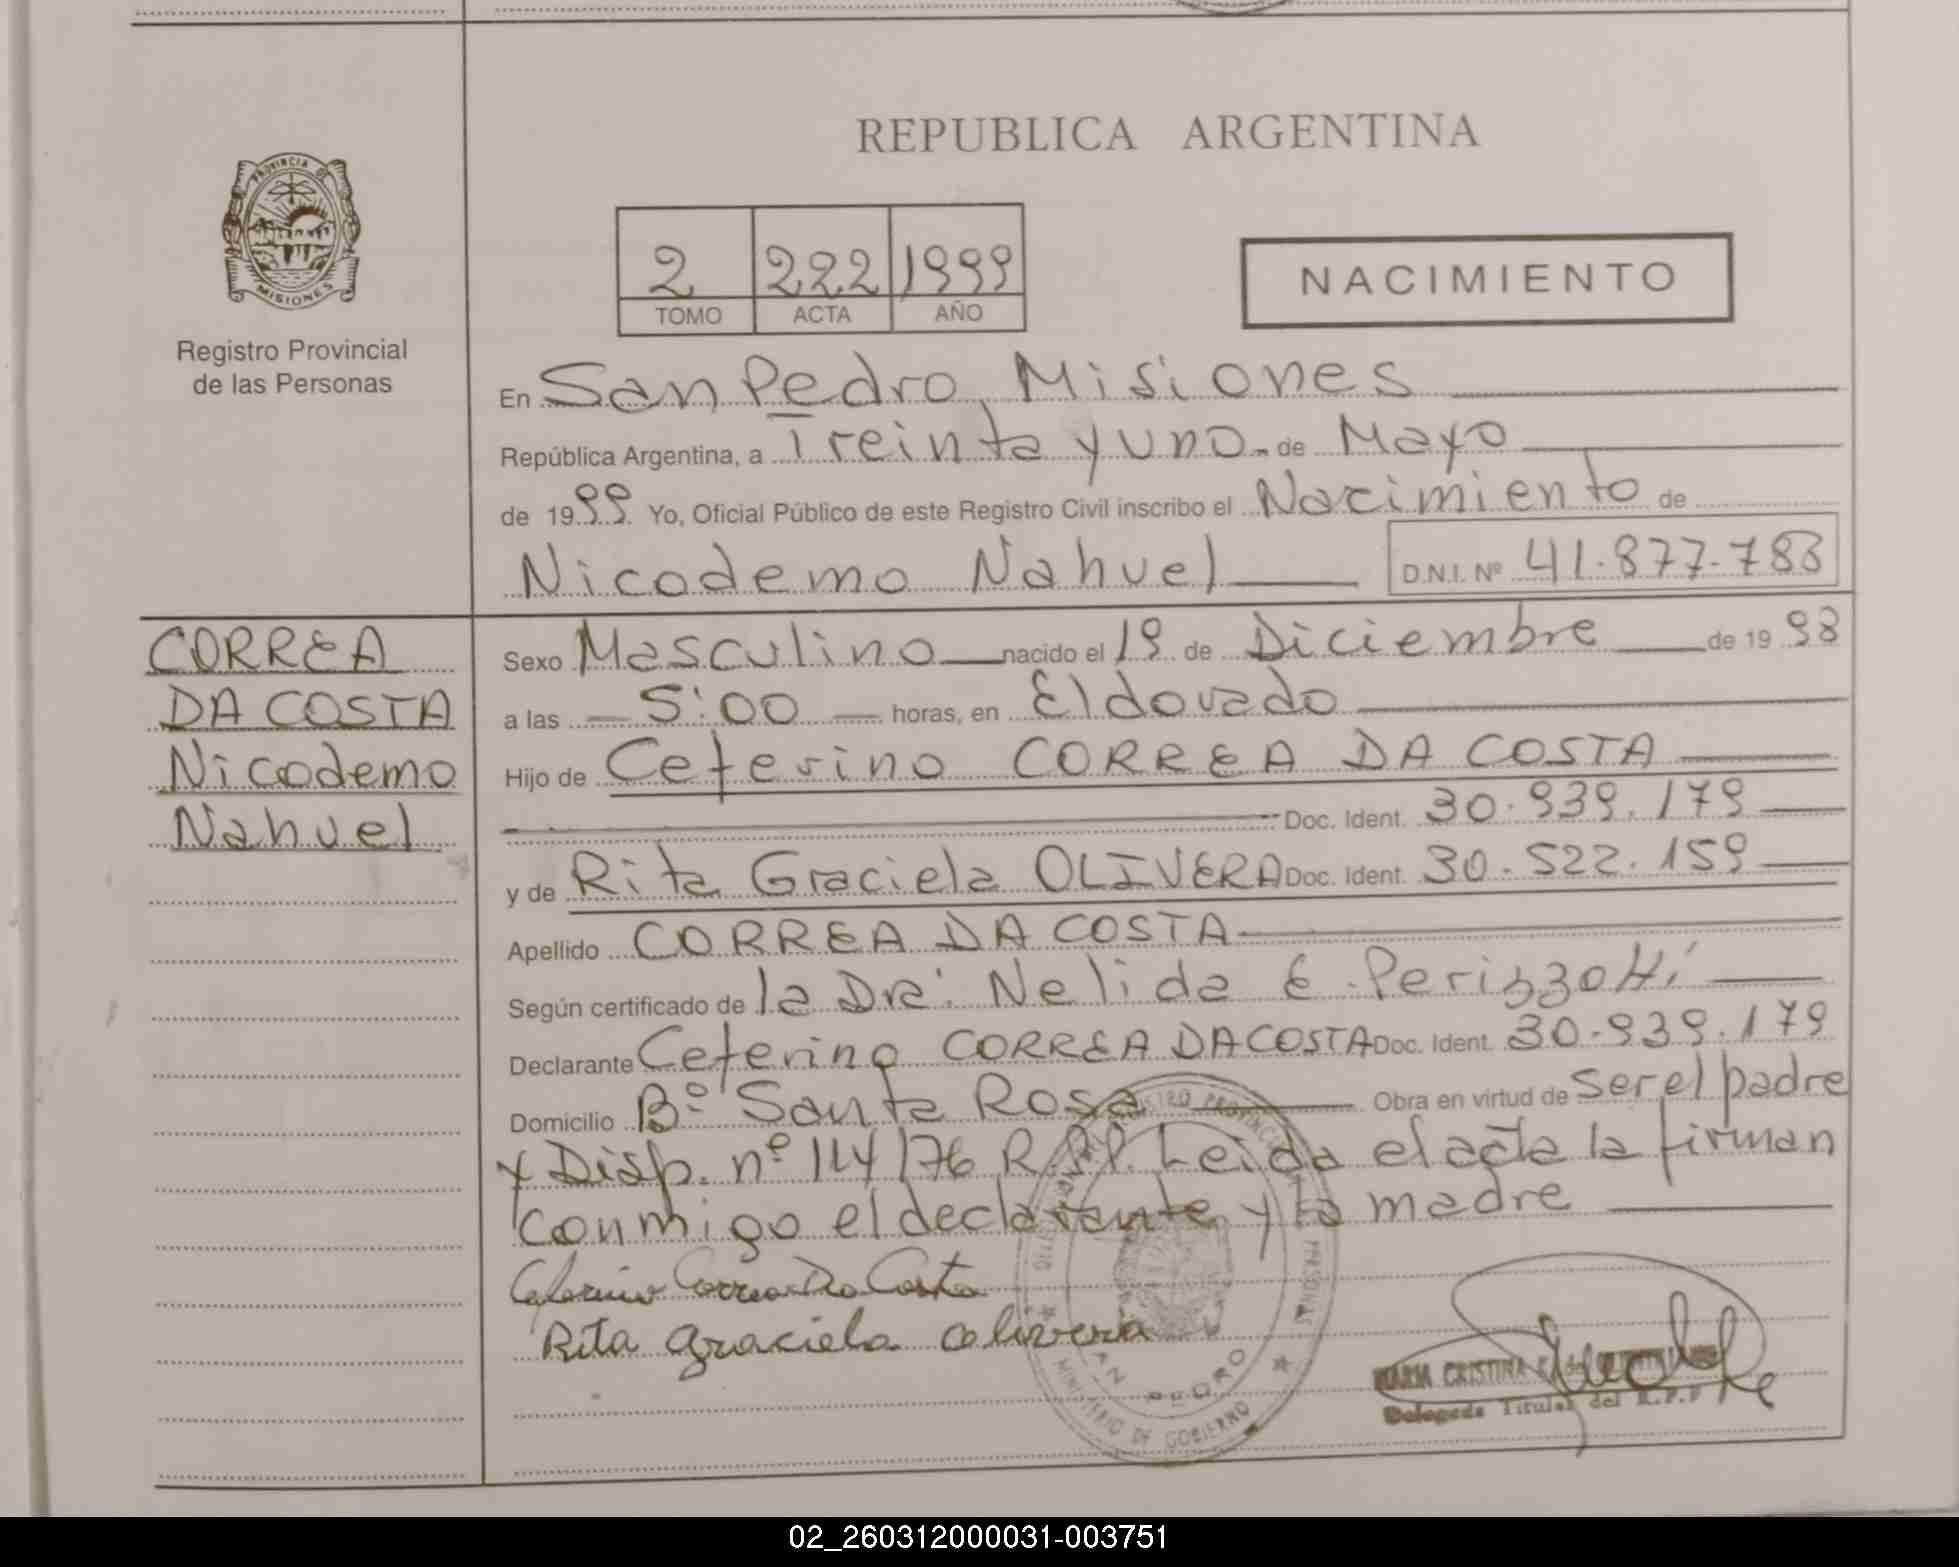 REPUBLICA ARGENTINA
PROVINCIA DE
MISIONES
Registro Provincial
de las Personas
2 222 1999
TOMO ACTA AÑO
NACIMIENTO
En San Pedro, Misiones
República Argentina, a Treinta y uno de Mayo
de 1999 Yo, Oficial Público de este Registro Civil inscribo el Nacimiento de
Nicodemo Nahuel D.N.I. Nº 41.877.783
CORREA
DA COSTA
Nicodemo
Nahuel
Sexo Masculino nacido el 19 de Diciembre de 1998
a las 5:00 horas, en Eldorado
Hijo de Ceferino CORREA DA COSTA
Doc. Ident. 30.939.179
y de Rita Graciela OLIVERA Doc. Ident. 30.522.159
Apellido CORREA DA COSTA
Según certificado de la Dra. Nelida E. Perizzotti
Declarante Ceferino CORREA DA COSTA Doc. Ident. 30.939.179
Domicilio Bº Santa Rosa Obra en virtud de ser el padre
y Disp. nº 114/76 R.P.P. Leida el acta la firman
conmigo el declarante y la madre
Ceferino Correa Da Costa
Rita Graciela Olivera
REGISTRO PROVINCIAL DE LAS PERSONAS
SAN PEDRO
MINISTERIO DE GOBIERNO
MARIA CRISTINA
Delegada Titular del R.P.P
02_260312000031-003751